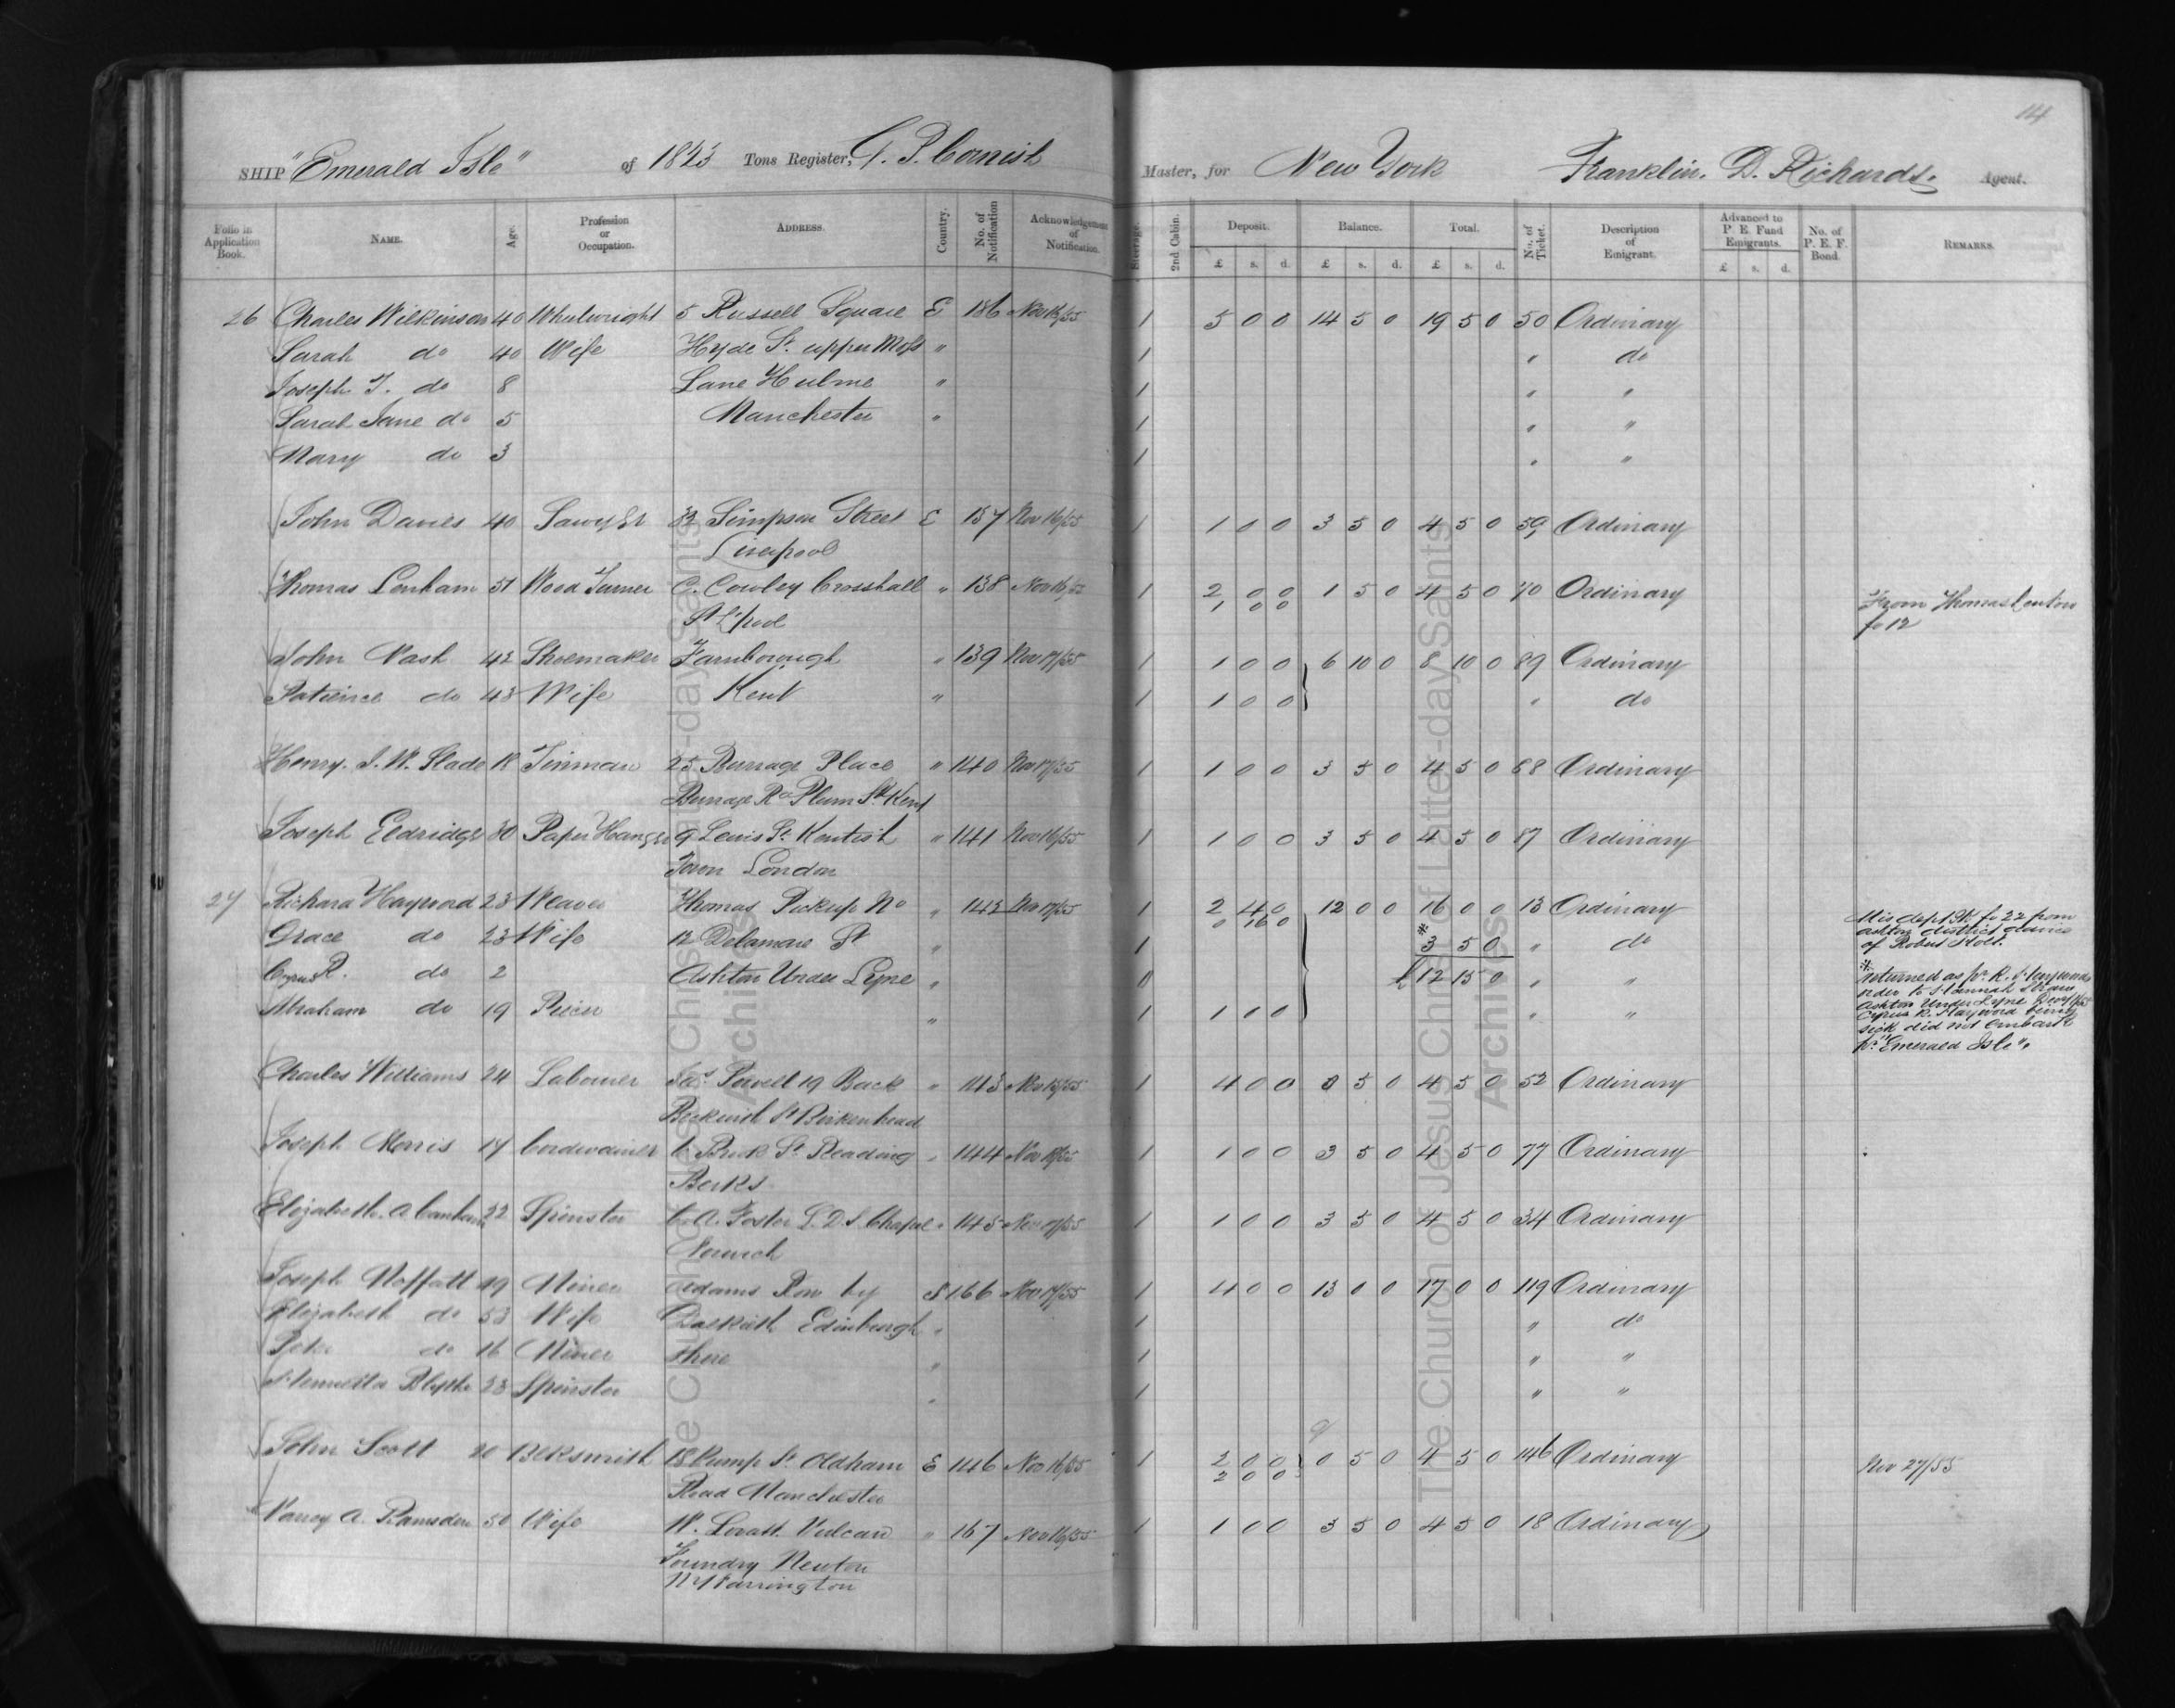 114
SHIP "Emerald Isle" of 1843 Tons Register, G. P. Cornish Master, for New York Franklin. D. Richards. Agent.
Folio in Application Book. NAME. Age. Profession or Occupation. ADDRESS. Country. No. of Notification Acknowledgement of Notification. Steerage. 2nd Cabin. Deposit. Balance. Total. No. of Ticket. Description of Emigrant. Advanced to P. E. Fund Emigrants. No. of P. E. F. Bond. REMARKS.
£ s. d. £ s. d. £ s. d. £ s. d.
26 Charles Wilkinson 40 Wheelwright 5 Russell Square E 136 Nov 16/55 1 5 0 0 14 5 0 19 5 0 50 Ordinary
Sarah do 40 Wife Hyde St. upper Moss " 1 " do
Joseph T. do 8 Lane Hulme " 1 " "
Sarah Jane do 5 Manchester " 1 " "
Mary do 3 1 " "
John Davies 40 Sawyer 32 Simpson Street E 137 Nov 16/55 1 1 0 0 3 5 0 4 5 0 59 Ordinary
Liverpool
Thomas Lenham 51 Wood Turner C. Cowley Crosshall " 138 Nov 16/55 1 2 0 0 1 5 0 4 5 0 70 Ordinary
1 0 0
St L'pool
From Thomas Lenton
fo 12
John Nash 42 Shoemaker Farnborough " 139 Nov 17/55 1 1 0 0 6 10 0 8 10 0 89 Ordinary
Patience do 43 Wife Kent " 1 1 0 0 " do
Henry. J. W. Slade 18 Tinman 25 Burrage Place " 140 Nov 17/55 1 1 0 0 3 5 0 4 5 0 68 Ordinary
Burrage Rd Plum Std Kent
Joseph Eldridge 30 Paper Hanger 9 Lewis St. Kentish " 141 Nov 16/55 1 1 0 0 3 5 0 4 5 0 87 Ordinary
Town London
27 Richard Hayward 23 Weaver Thomas Pickup No " 142 Nov 17/55 1 2 4 0 12 0 0 16 0 0 13 Ordinary
0 16 0
Grace do 23 Wife 12 Delamare St " 1 * 3 5 0 " do
Cyrus R. do 2 Ashton Under Lyne " 0 £ 12 15 0 " "
Abraham do 19 Piecer " 1 1 0 0 " "
His dept 9/- fo 22 from
Ashton district
of Robert Holt.
* returned as pr. R. Haywards
order to Hannah
Ashton Under Lyne
Cyrus R. Hayward being
sick did not Embark
pr. "Emerald Isle".
Charles Williams 24 Labourer Jas. Powell 19 Back " 143 Nov 15/55 1 4 0 0 0 5 0 4 5 0 52 Ordinary
Beckwith St Birkenhead
Joseph Morris 17 Cordwainer 6 Brook St Reading " 144 Nov 18/55 1 1 0 0 3 5 0 4 5 0 77 Ordinary
Berks
Elizabeth. A Canham 22 Spinster C. A. Foster L. D. S. Chapel " 145 Nov 17/55 1 1 0 0 3 5 0 4 5 0 34 Ordinary
Norwich
Joseph Moffatt 49 Miner Adams Row by S 166 Nov 17/55 1 4 0 0 13 0 0 17 0 0 119 Ordinary
Elizabeth do 53 Wife Dalkeith Edinburgh " 1 " do
Peter do 16 Miner shire " 1 " "
Henrietta Blythe 23 Spinster " 1 " "
John Scott 20 Blksmith 18 Pump St Oldham E 146 Nov 16/55 1 2 0 0 0 5 0 4 5 0 146 Ordinary Nov 27/55
2 0 0
Road Manchester
Nancy A. Ramsden 50 Wife W. Lovatt Vulcan " 167 Nov 16/55 1 1 0 0 3 5 0 4 5 0 18 Ordinary
Foundry Newton
Nr Warrington
The Church of Jesus Christ of Latter-day Saints
Archives
The Church of Jesus Christ of Latter-day Saints
Archives